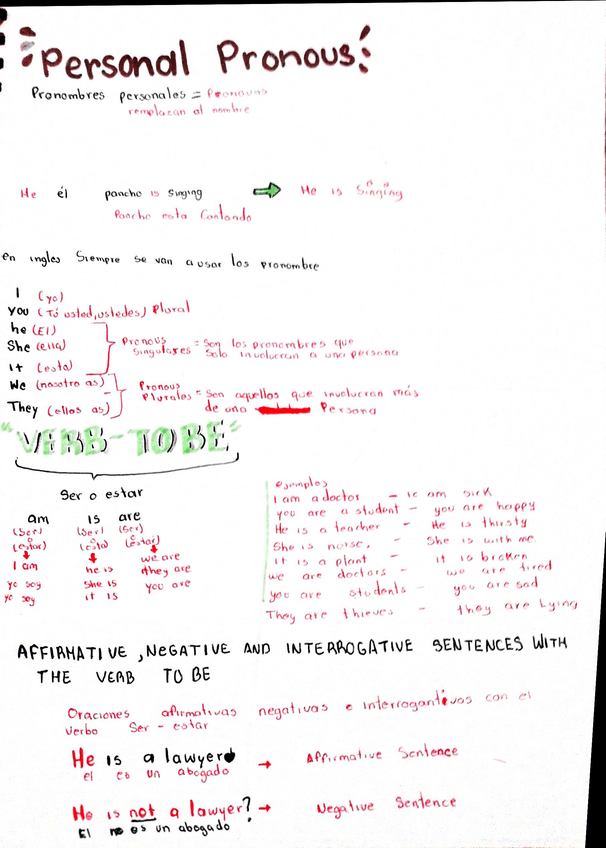 Personal Pronous
Pronombres personales = Pronouns
remplazan al nombre
He él pancho is Singing He is Singing
Pancho esta Cantando
en ingles Siempre se van a usar los pronombre
I (yo)
you (Tú usted, ustedes) Plural
he (El)
She (ella)
It (esto)
Pronous Singulares = Son los pronombres que
Solo involucran a una persona
We (nosotro as)
They (ellos as)
Pronous Plurales = Son aquellos que involucran más
de una Persona
"VERB-TO BE"
Ser o estar
am is are
(Ser) (Ser) (Ser)
(estar) (esta) (estar)
I am he is we are
yo soy She is they are
yo soy it is you are
ejemplos
I am a doctor - am sick
you are a student - you are happy
He is a teacher - He is thirsty
She is norse. - She is with me.
it is a plant - it is broken
we are doctors - we are tired
you are students - you are sad
They are thieves - they are Lying
AFFIRMATIVE, NEGATIVE AND INTERROGATIVE SENTENCES WITH
THE VERB TO BE
Oraciones afirmativas negativas e interrogantivos con el
verbo Ser - estar
He is a lawyer → Affirmative Sentence
el es un abogado
He is not a lawyer? → Negative Sentence
El no es un abogado